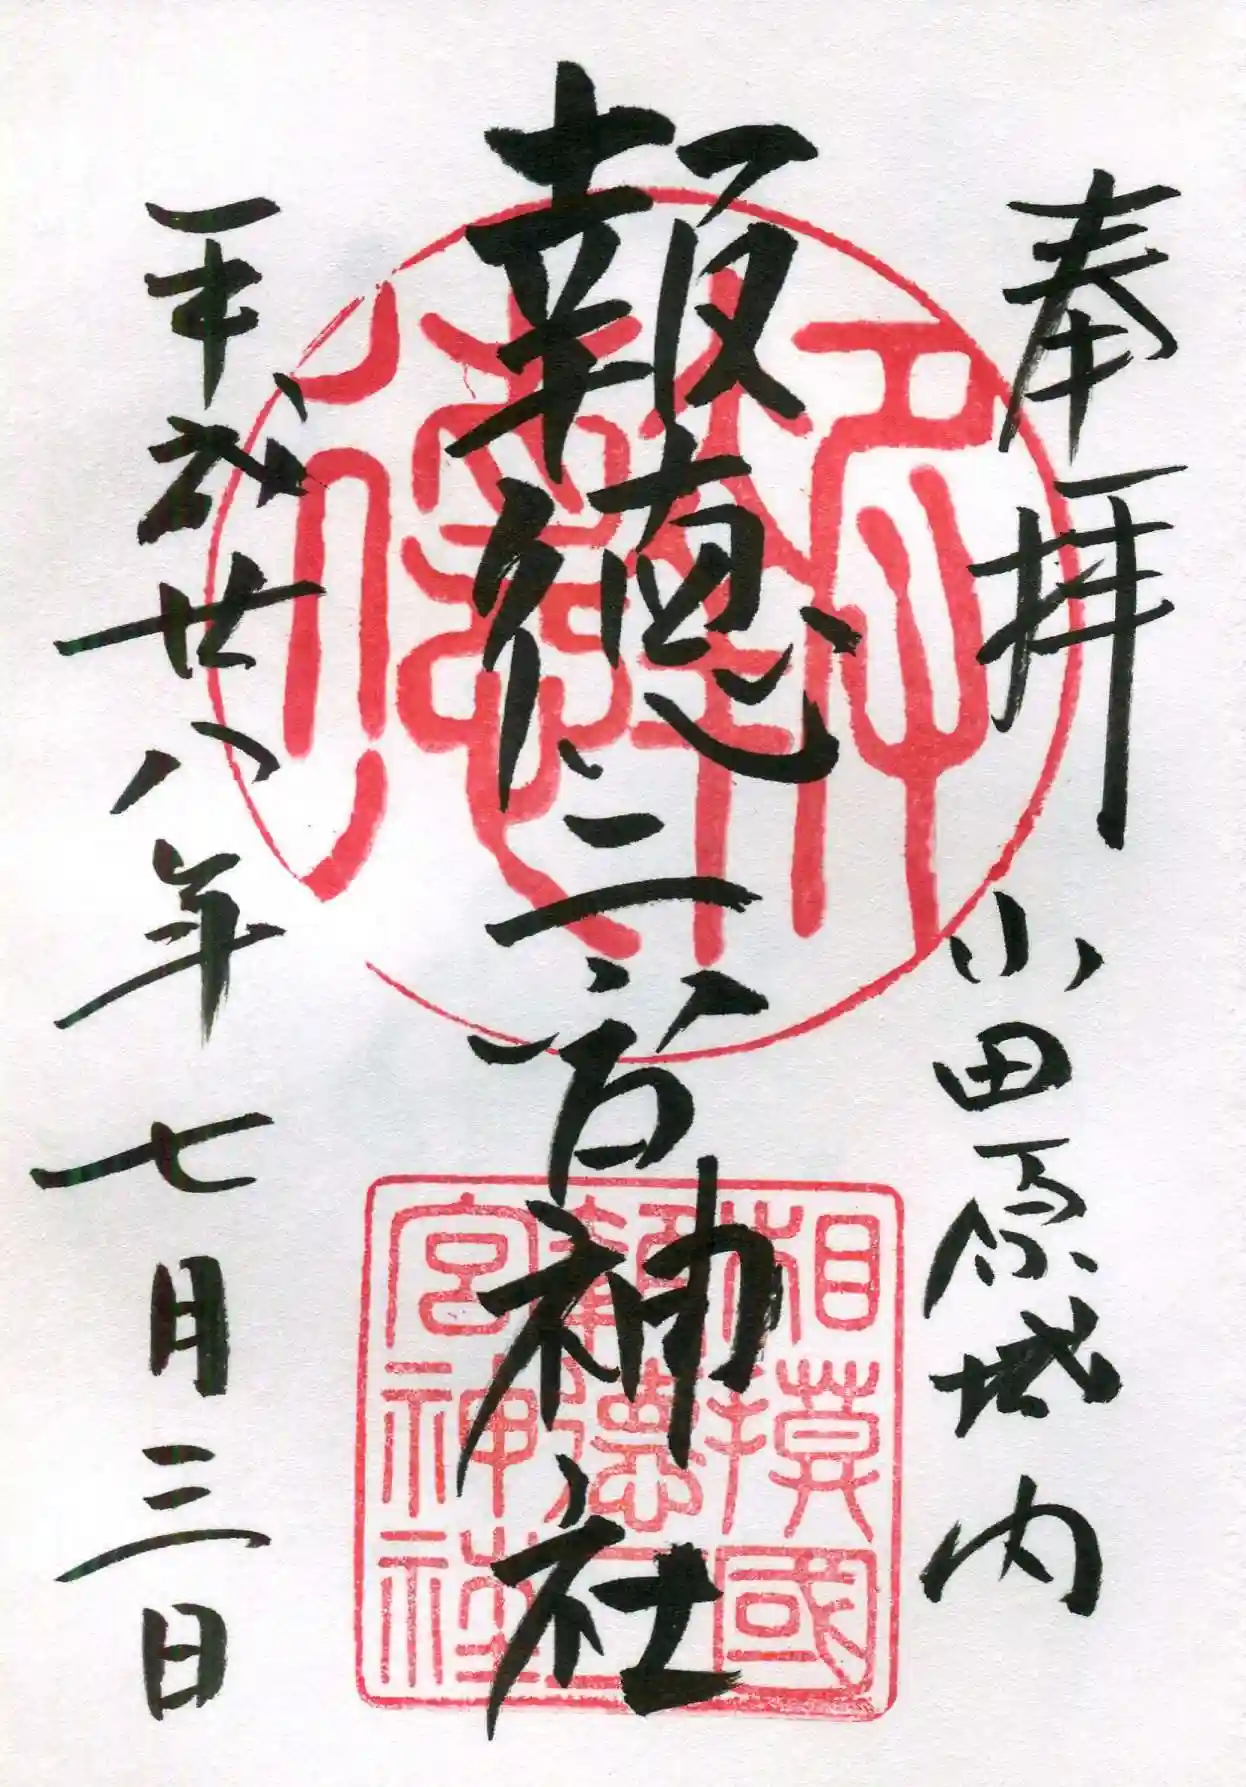 奉拝 小田原城内
報徳二宮神社
平成廿八年七月三日
相摸國
報德二
宮神社